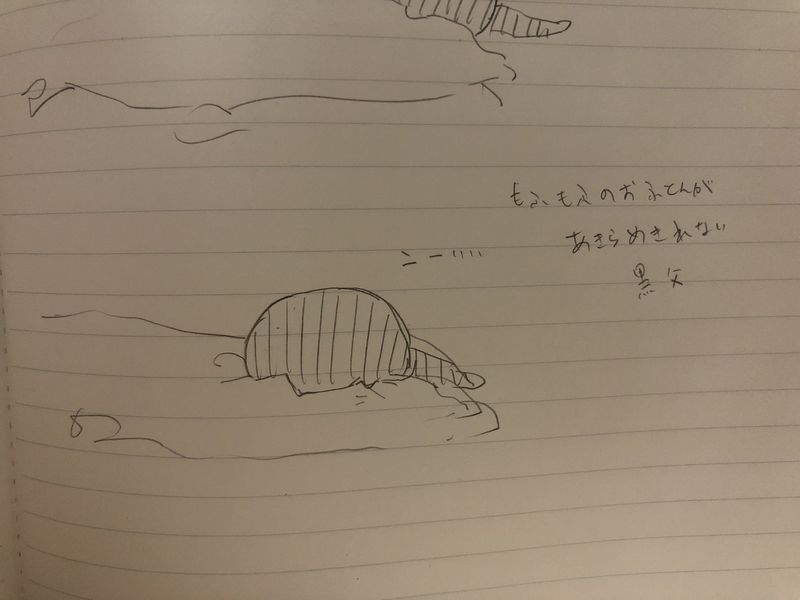 もふもふのおふとんが
あきらめきれない
黒父
ニー‥‥